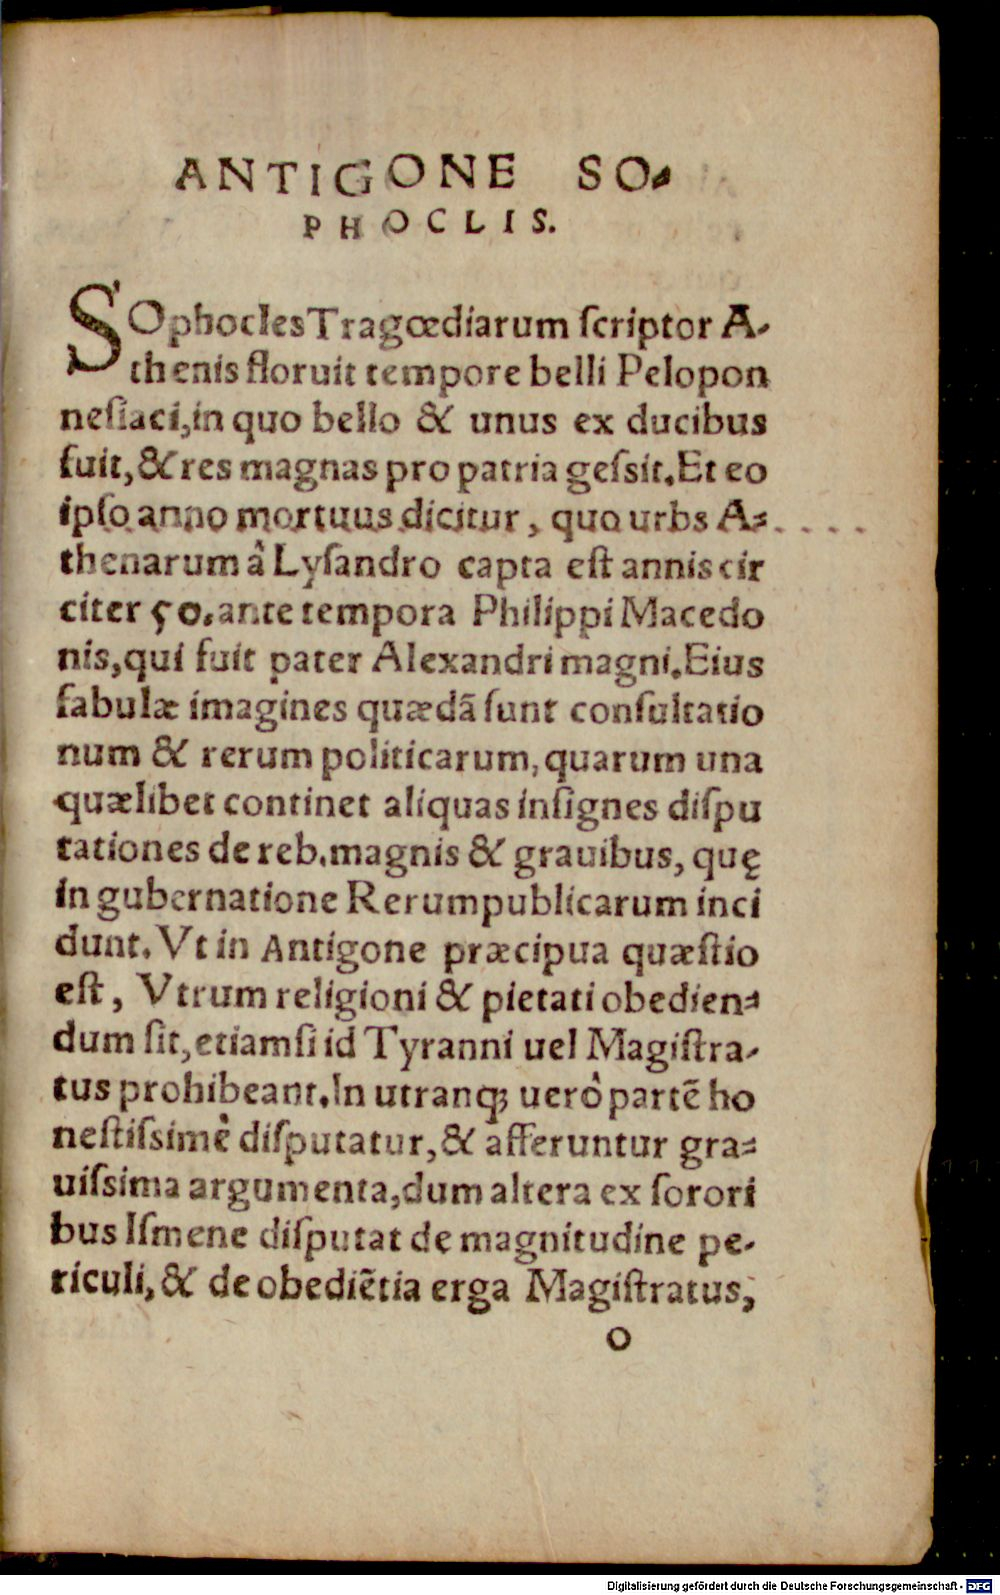 ANTIGONE SO-
PHOCLIS.
SOphocles Tragœdiarum ſcriptor A-
thenis floruit tempore belli Pelopon
neſiaci, in quo bello & unus ex ducibus
fuit, & res magnas pro patria geſsit. Et eo
ipſo anno mortuus dicitur, quo urbs A-
thenarum à Lyſandro capta eſt annis cir
citer 50. ante tempora Philippi Macedo
nis, qui fuit pater Alexandri magni. Eius
fabulæ imagines quædã ſunt conſultatio
num & rerum politicarum, quarum una
quælibet continet aliquas inſignes diſpu
tationes de reb. magnis & grauibus, quę
in gubernatione Rerumpublicarum inci
dunt. Vt in Antigone præcipua quæſtio
eſt, Vtrum religioni & pietati obedien-
dum ſit, etiamſi id Tyranni uel Magiſtra-
tus prohibeant. In utranq; uerò partẽ ho
neſtiſsimè diſputatur, & afferuntur gra-
uiſsima argumenta, dum altera ex ſorori
bus Iſmene diſputat de magnitudine pe-
riculi, & de obediẽtia erga Magiſtratus,
O
Digitalisierung gefördert durch die Deutsche Forschungsgemeinschaft - DFG